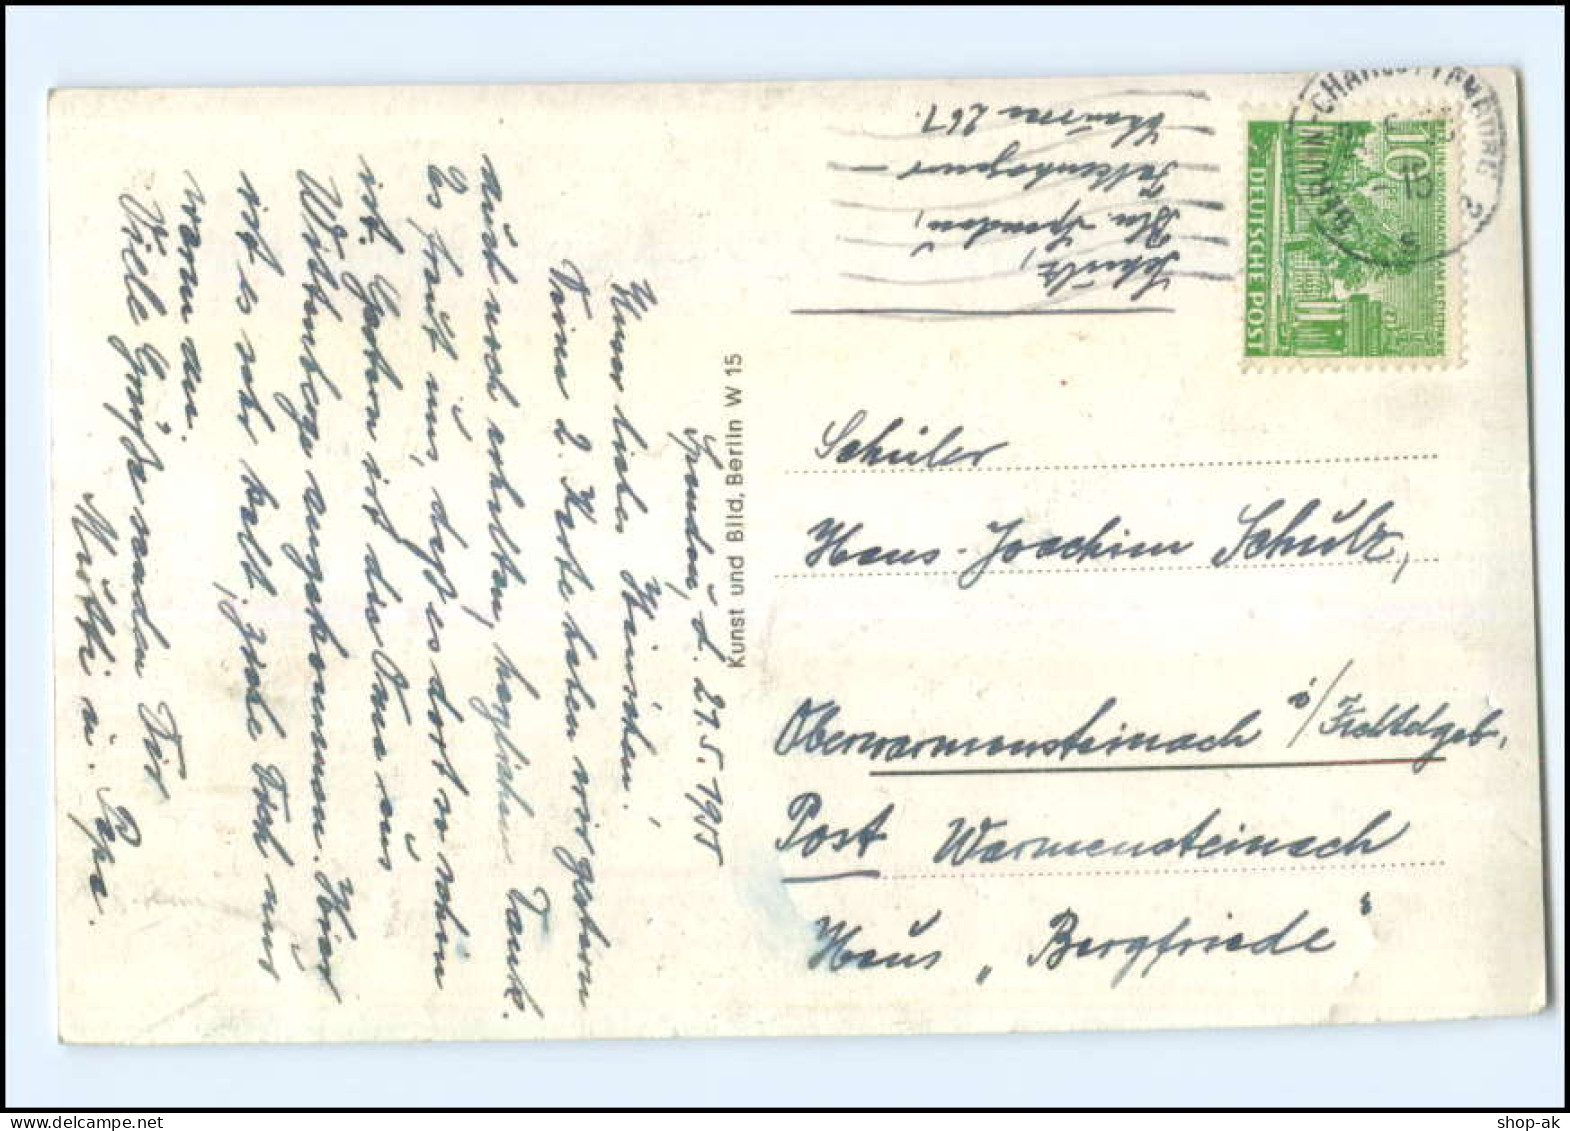 Spandau, d. 21.5.1955
Unser liebes Heinichen!
Deine 2. Karte haben wir gestern
auch noch erhalten, herzlichen Dank.
Es freut uns, daß es dort so schön
ist. Gestern ist die Oma aus
Wittenberge angekommen. Hier
ist es sehr kalt, ziehe Dich nur
warm an.
Viele Grüße senden Dir
Mutti u. Papa.
Kunst und Bild, Berlin W 15
Schulz,
Bln. Spandau,
Falkenhagener-
Chaussee 267.
BERLIN-CHARLOTTENBURG 2
10
DEUTSCHE POST
Schüler
Hans-Joachim Schulz,
Oberwarmensteinach i/Fichtelgeb.
Post Warmensteinach
Haus „Bergfriede“
shop-ak